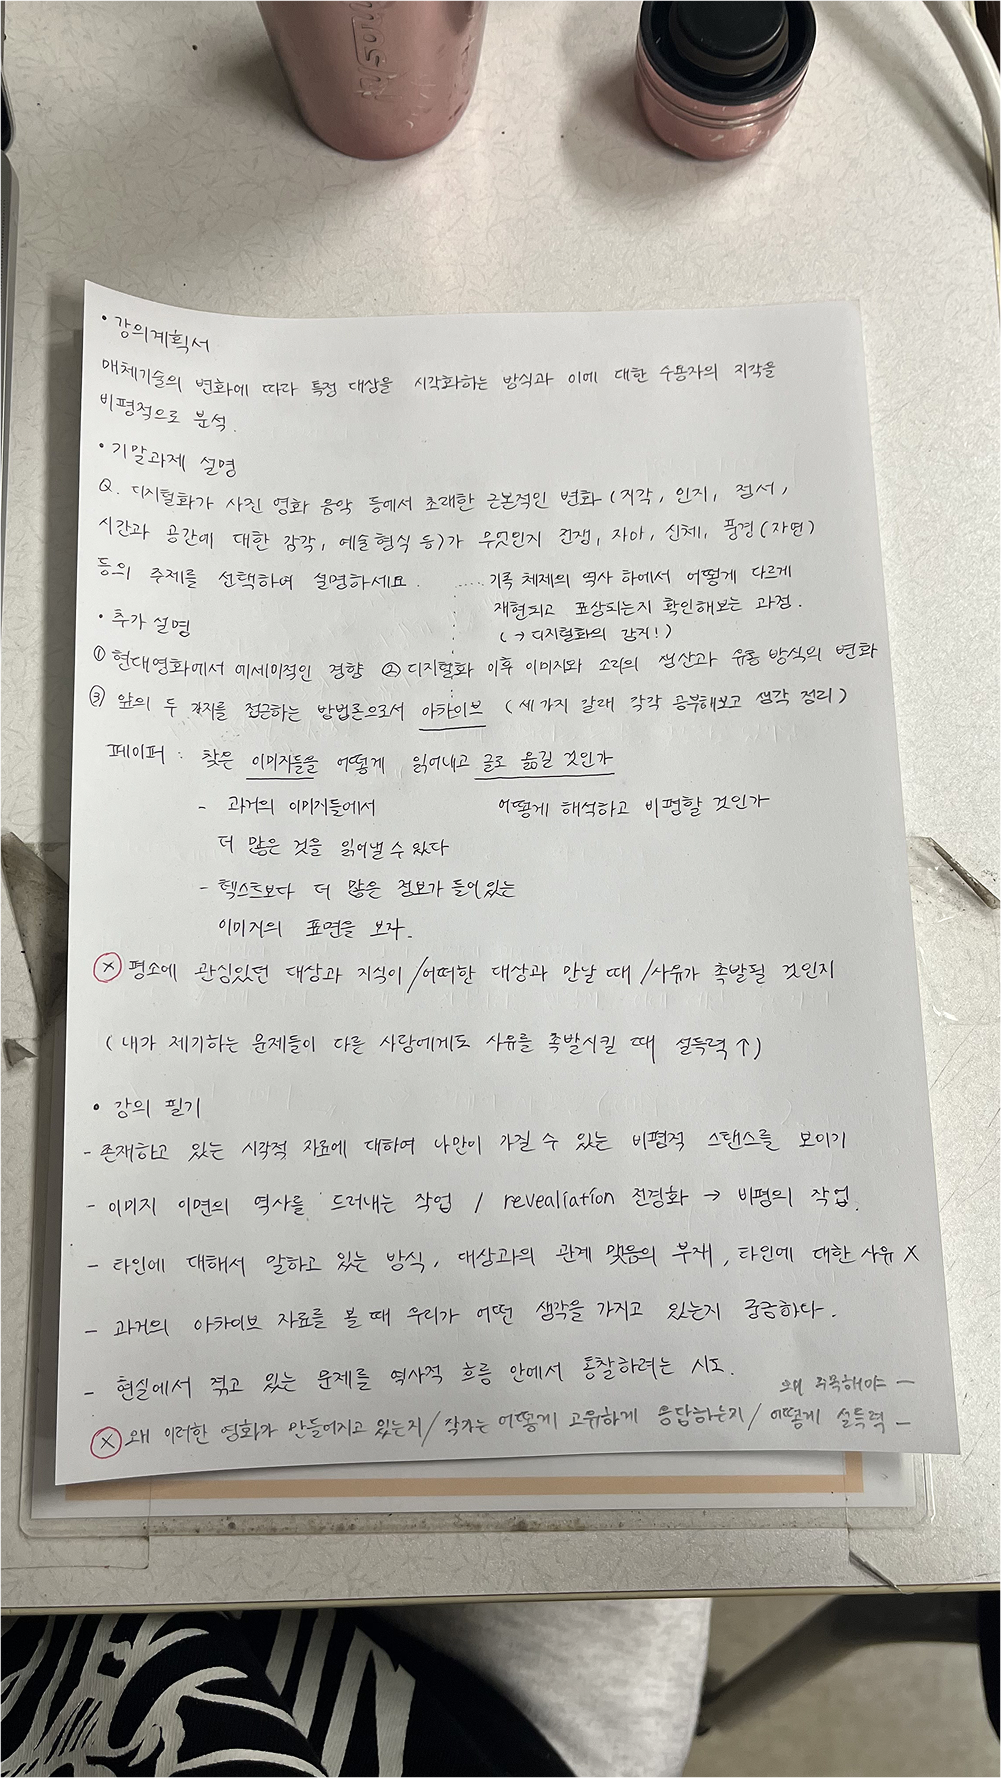 • 강의계획서
매체기술의 변화에 따라 특정 대상을 시각화하는 방식과 이에 대한 수용자의 지각을
비평적으로 분석.
• 기말과제 설명
Q. 디지털화가 사진 영화 음악 등에서 초래한 근본적인 변화 (지각, 인지, 정서,
시간과 공간에 대한 감각, 예술형식 등)가 무엇인지 전쟁, 자아, 신체, 풍경(자연)
등의 주제를 선택하여 설명하세요.
기록 체제의 역사 하에서 어떻게 다르게
재현되고 표상되는지 확인해보는 과정.
(→ 디지털화의 감지!)
• 추가 설명
① 현대영화에서 에세이적인 경향 ② 디지털화 이후 이미지와 소리의 생산과 유통 방식의 변화
③ 앞의 두 가지를 접근하는 방법론으로서 아카이브 (세가지 갈래 각각 공부해보고 생각 정리)
페이퍼 : 찾은 이미지들을 어떻게 읽어내고 글로 옮길 것인가
- 과거의 이미지들에서 어떻게 해석하고 비평할 것인가
더 많은 것을 읽어낼 수 있다
- 텍스트보다 더 많은 정보가 들어있는
이미지의 표면을 보자.
ⓧ 평소에 관심있던 대상과 지식이 / 어떠한 대상과 만날 때 / 사유가 촉발될 것인지
(내가 제기하는 문제들이 다른 사람에게도 사유를 촉발시킬 때 설득력 ↑)
• 강의 필기
- 존재하고 있는 시각적 자료에 대하여 나만이 가질 수 있는 비평적 스탠스를 보이기
- 이미지 이면의 역사를 드러내는 작업 / revealiation 전경화 → 비평의 작업.
- 타인에 대해서 말하고 있는 방식, 대상과의 관계 맺음의 부재, 타인에 대한 사유 X
- 과거의 아카이브 자료를 볼 때 우리가 어떤 생각을 가지고 있는지 궁금하다.
- 현실에서 겪고 있는 문제를 역사적 흐름 안에서 통찰하려는 시도.
왜 주목해야 —
ⓧ 왜 이러한 영화가 만들어지고 있는지 / 작가는 어떻게 고유하게 응답하는지 / 어떻게 설득력 —